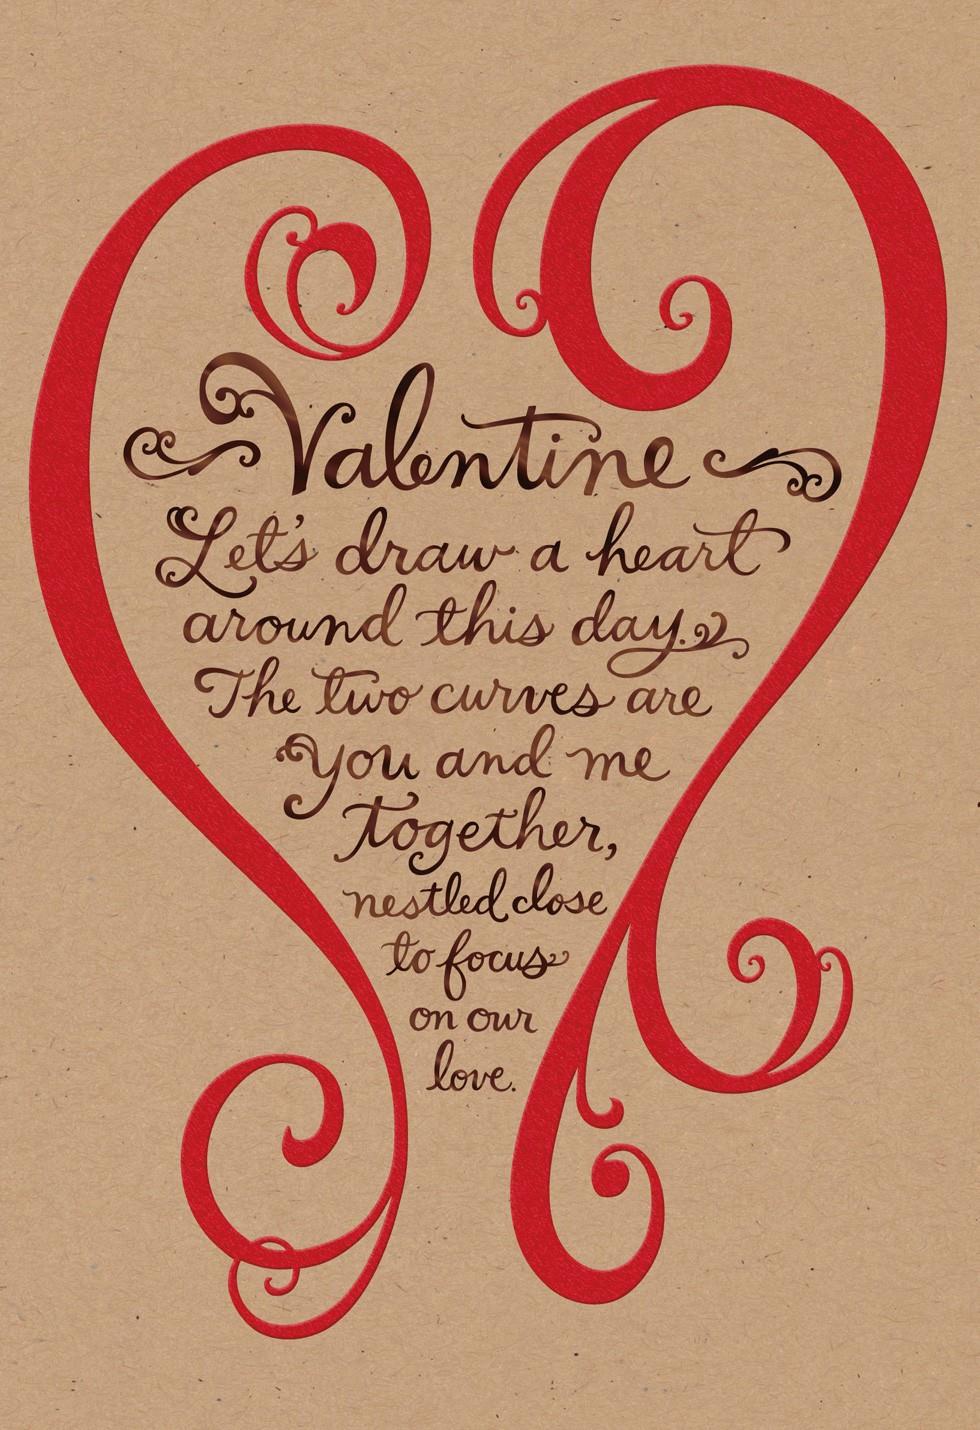 Valentine
Let's draw a heart
around this day.
The two curves are
you and me
together,
nestled close
to focus
on our
love.